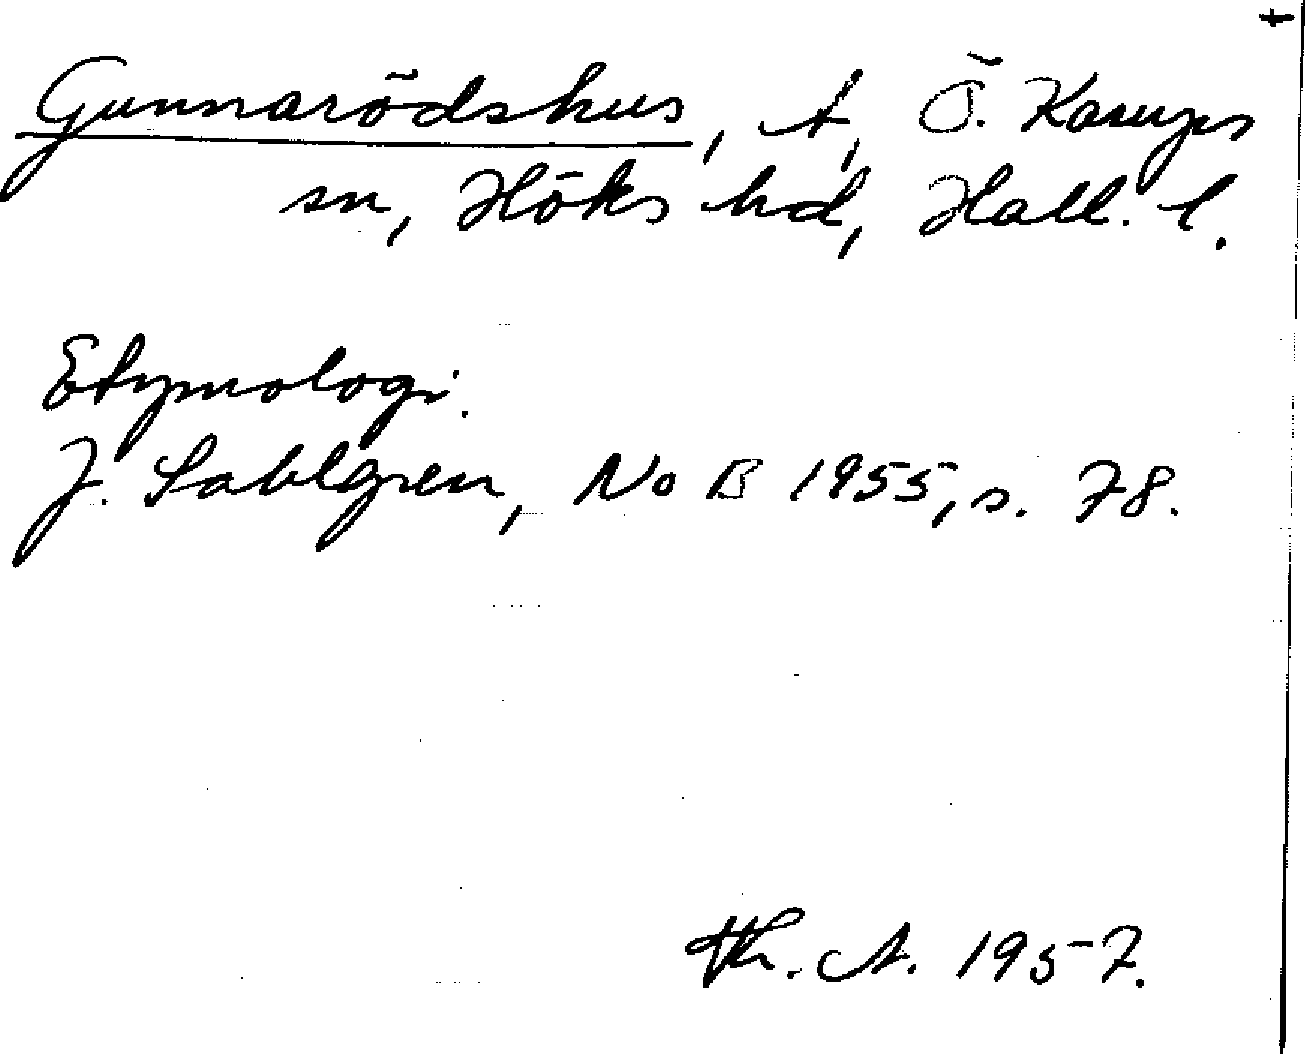 Gunnarödshus, t, Ö. Karups
sn, Höks hd, Hall. l.
Etymologi.
J. Sahlgren, NoB 1955, s. 78.
Th. A. 1957.